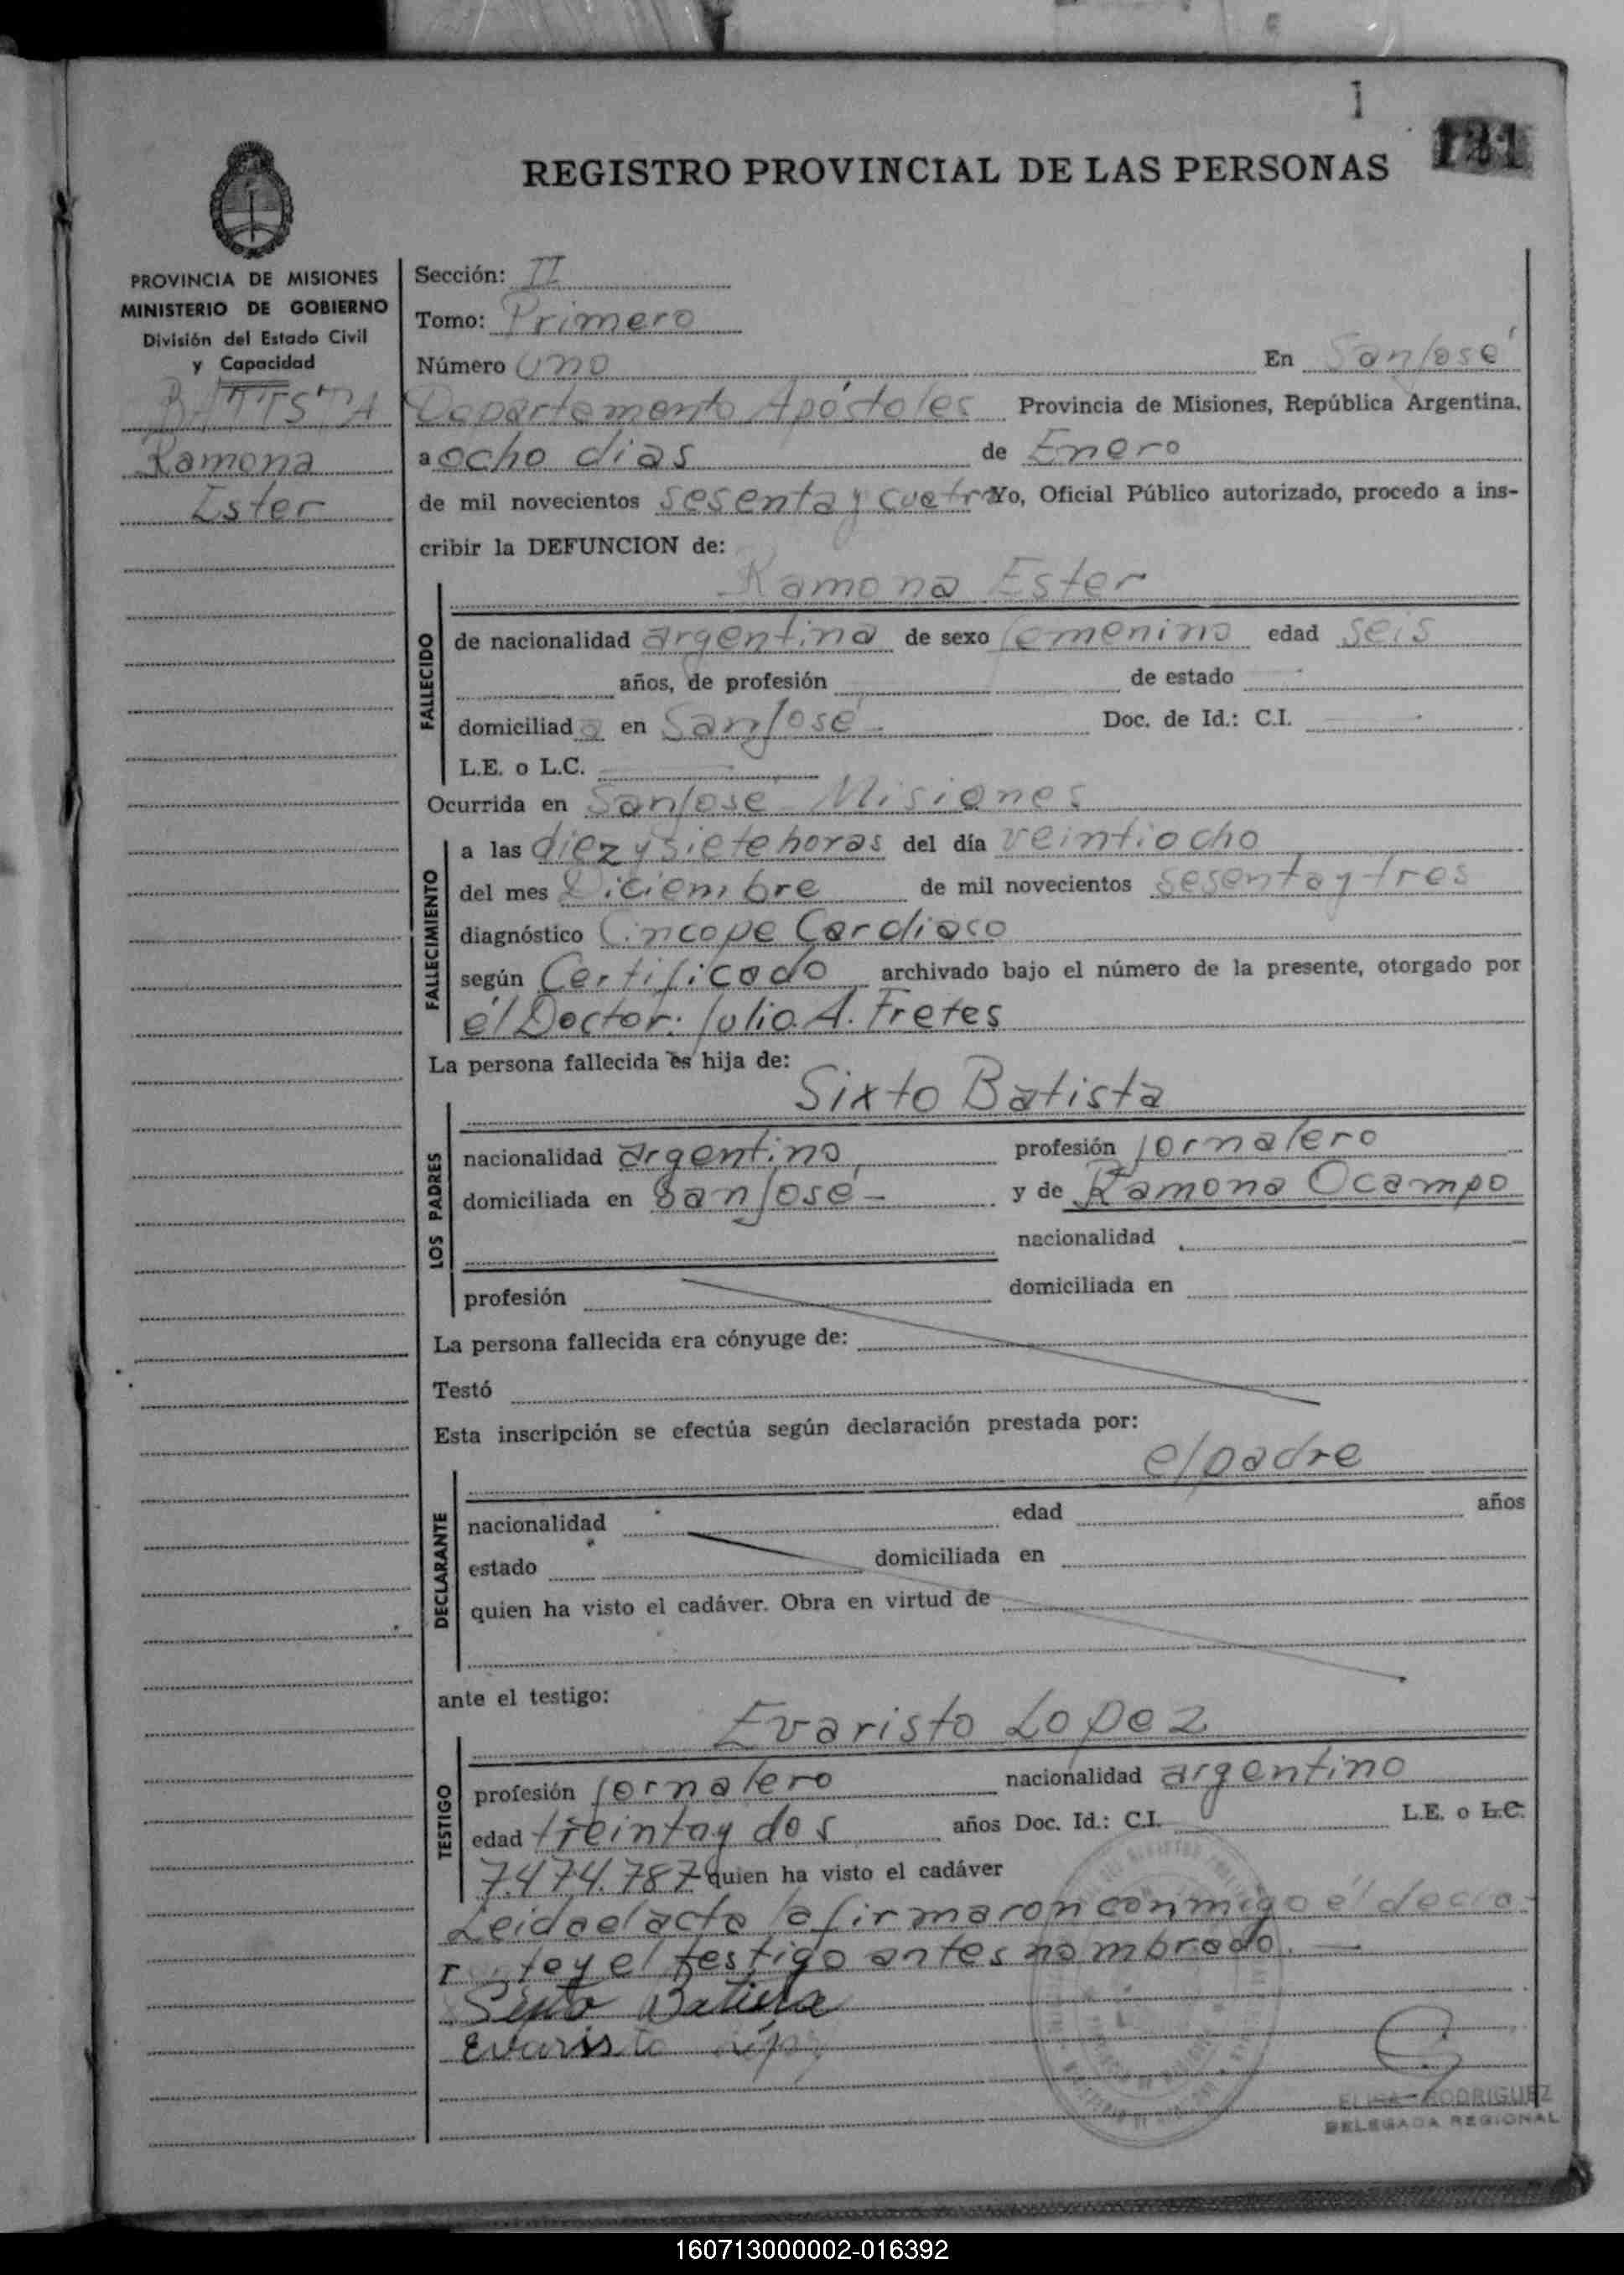 1
121
REGISTRO PROVINCIAL DE LAS PERSONAS
PROVINCIA DE MISIONES
MINISTERIO DE GOBIERNO
División del Estado Civil
y Capacidad
BATISTA
Ramona
Ester
Sección: II
Tomo: Primero
Número uno En San José
Departamento Apóstoles Provincia de Misiones, República Argentina.
a ocho dias de Enero
de mil novecientos sesenta y cuatro Yo, Oficial Público autorizado, procedo a ins-
cribir la DEFUNCION de:
Ramona Ester
FALLECIDO
de nacionalidad argentina de sexo femenino edad seis
años, de profesión de estado
domiciliada en San José - Doc. de Id.: C.I.
L.E. o L.C.
Ocurrida en San José - Misiones
FALLECIMIENTO
a las diez y siete horas del día veintiocho
del mes Diciembre de mil novecientos sesenta y tres
diagnóstico Cincope Cardiaco
según Certificado archivado bajo el número de la presente, otorgado por
él Doctor: Julio A. Fretes
La persona fallecida es hija de:
Sixto Batista
LOS PADRES
nacionalidad argentino, profesión jornalero
domiciliada en San José - y de Ramona Ocampo
nacionalidad
profesión domiciliada en
La persona fallecida era cónyuge de:
Testó
Esta inscripción se efectúa según declaración prestada por:
el padre
DECLARANTE
nacionalidad edad años
estado domiciliada en
quien ha visto el cadáver. Obra en virtud de
ante el testigo:
Evaristo Lopez
TESTIGO
profesión jornalero nacionalidad argentino
edad treinta y dos años Doc. Id.: C.I. L.E. o L.C.
7.474.787 quien ha visto el cadáver
Leida el acta la firmaron conmigo él decla-
r te y el testigo antes nombrado. -
Sixto Batista
Evaristo
RODRIGUEZ
DELEGADA REGIONAL
160713000002-016392